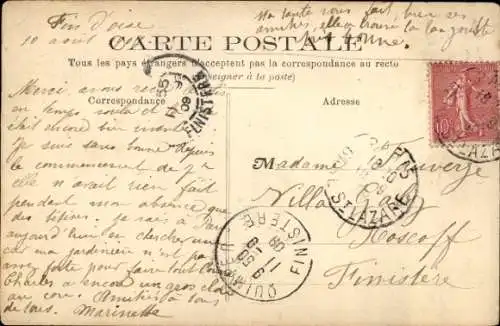 Fin d'oise
10 août
Ma tante vous fait bien ses
amitiés, elle a trouvé la langouste
très bonne.
CARTE POSTALE
Tous les pays étrangers n'acceptent pas la correspondance au recto
(se renseigner à la poste)
Correspondance
Adresse
Merci, avons reçu
en temps voulu et
était encore bien vivante.
Je suis sans bonne depuis
le commencement de
elle n'avait rien
pendant mon absence que
des bêtises. Je vais à Paris
aujourd'hui en chercher une
car ma jardinière n'est pas
assez forte pour faire tout
Charles a encore un gros clou
au cou. Amitiés à tous
de tous. Marinette
Madame
Villa
Roscoff
Finistère
FINISTERE
ST LAZARE
QUIMPER
FINISTERE
10